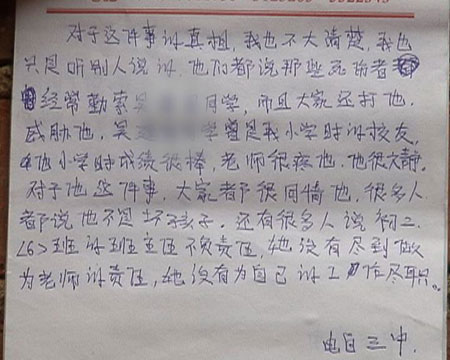 对于这件事的真相,我也不大清楚,我也
只是听别人说的,他们都说那些死伤者
经常勒索吴 同学,而且大家还打他,
威胁他,吴 曾是我小学时的校友,
他小学时成绩很棒,老师很疼他,他很文静。
对于他这件事,大家都很同情他,很多人
都说他不是坏孩子。还有很多人说初二
<6>班的班主任不负责任,她没有尽到做
为老师的责任,她没有为自己的工作尽职。